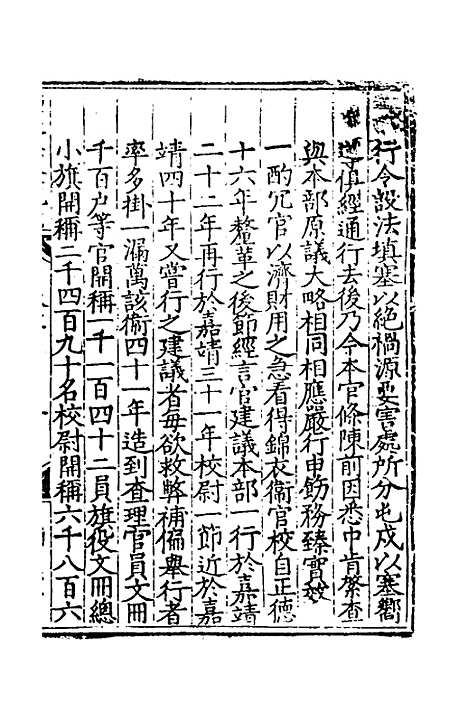 行令設法填塞以絕禍源要害處所分屯戍以塞嚮
導俱經通行去後乃今本官條陳前因悉中肯綮查
與本部原議大略相同相應嚴行申飭務臻實效
一酌冗官以濟財用之急看得錦衣衛官校自正德
十六年釐革之後節經言官建議本部一行於嘉靖
二十二年再行於嘉靖三十一年校尉一節近於嘉
靖四十年又嘗行之建議者每欲救弊補偏舉行者
率多掛一漏萬該衛四十一年造到查理官員文冊
千百戶等官開稱一千一百四十二員旗役文冊總
小旗開稱二千四百九十名校尉開稱六千八百六